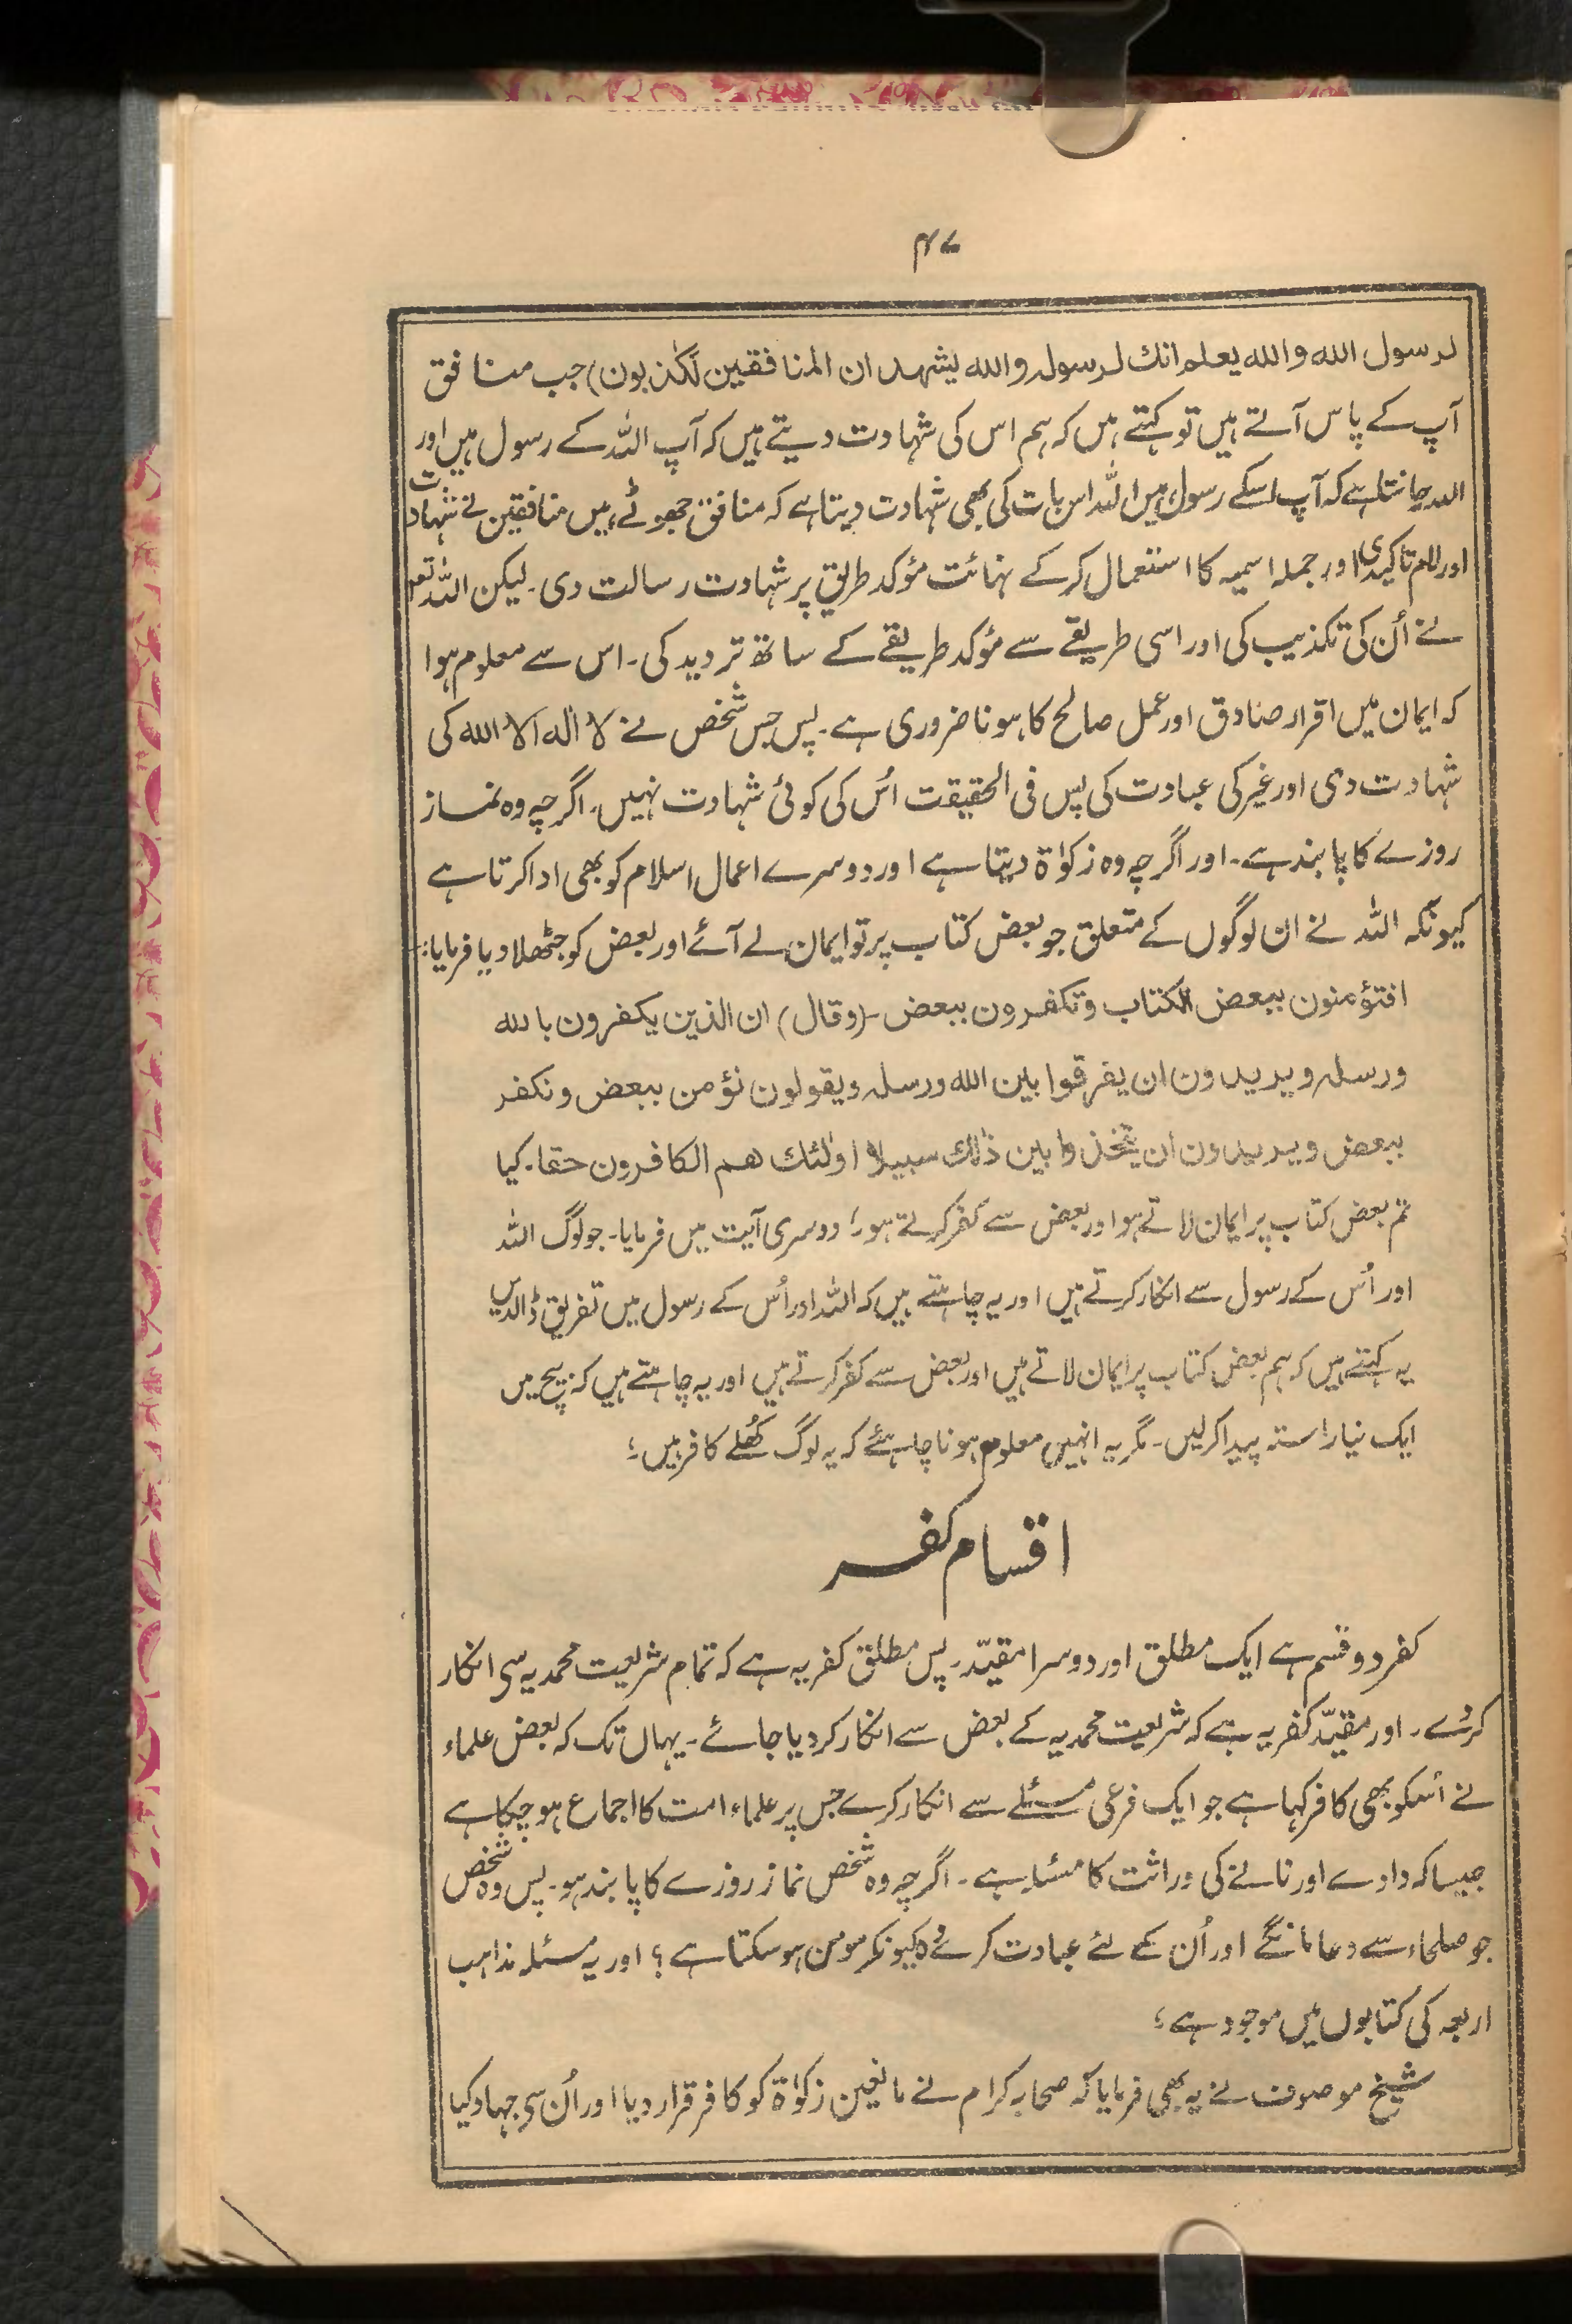 ۴۷
لرسول الله والله يعلم انك لرسوله والله يشهد ان المنافقين لكٰذبون) جب منافق
آپ کے پاس آتے ہیں تو کہتے ہیں کہ ہم اس کی شہادت دیتے ہیں کہ آپ اللہ کے رسول ہیں اور
اللہ جانتا ہے کہ آپ اسکے رسول ہیں اللہ اس بات کی بھی شہادت دیتا ہے کہ منافق جھوٹے ہیں منافقین نے شہادت
اور لام تاکیدی اور جملہ اسمیہ کا استعمال کر کے نہائت مؤکد طریق پر شہادت رسالت دی۔ لیکن اللہ تعہ
نے اُن کی تکذیب کی اور اسی طریقے سے مؤکد طریقے کے ساتھ تردید کی۔ اس سے معلوم ہوا
کہ ایمان میں اقرار صادق اور عمل صالح کا ہونا ضروری ہے۔ پس جس شخص نے لا الٰه الا الله کی
شہادت دی اور غیر کی عبادت کی پس فی الحقیقت اُس کی کوئی شہادت نہیں۔ اگرچہ وہ نماز
روزے کا پابند ہے۔ اور اگرچہ وہ زکوٰۃ دیتا ہے اور دوسرے اعمال اسلام کو بھی ادا کرتا ہے
کیونکہ اللہ نے ان لوگوں کے متعلق جو بعض کتاب پر تو ایمان لے آئے اور بعض کو جٹھلا دیا فرمایا:۔
افتؤمنون ببعض الكتاب وتكفرون ببعض۔ (وقال) ان الذين يكفرون بالله
ورسله ويريدون ان يفرقوا بين الله ورسله ويقولون نؤمن ببعض ونكفر
ببعض ويريدون ان يتخذوا بين ذٰلك سبيلا اولٰئك هم الكافرون حقا۔ کیا
تم بعض کتاب پر ایمان لاتے ہو اور بعض سے کفر کرتے ہو؛ دوسری آیت میں فرمایا۔ جو لوگ اللہ
اور اُس کے رسول سے انکار کرتے ہیں اور یہ چاہتے ہیں کہ اللہ اور اُس کے رسول میں تفریق ڈالدیں
یہ کہتے ہیں کہ ہم بعض کتاب پر ایمان لاتے ہیں اور بعض سے کفر کرتے ہیں اور یہ چاہتے ہیں کہ بیچ میں
ایک نیا راستہ پیدا کر لیں۔ مگر یہ انہیں معلوم ہونا چاہئے کہ یہ لوگ کُھلے کافر ہیں؛
اقسام کفر
کفر دو قسم ہے ایک مطلق اور دوسرا مقیّد۔ پس مطلق کفر یہ ہے کہ تمام شریعت محمدیہ سی انکار
کرے۔ اور مقیّد کفر یہ ہے کہ شریعت محمدیہ کے بعض سے انکار کر دیا جائے۔ یہاں تک کہ بعض علماء
نے اُسکو بھی کافر کہا ہے جو ایک فرعی مسئلے سے انکار کرے جس پر علماء امت کا اجماع ہو چکا ہے
جیسا کہ دادے اور نانے کی وراثت کا مسئلہ ہے۔ اگرچہ وہ شخص نماز روزے کا پابند ہو۔ پس وہ شخص
جو صلحاء سے دعا مانگے اور اُن کے لئے عبادت کرے وُہ کیونکر مومن ہو سکتا ہے؟ اور یہ مسئلہ مذاہب
اربعہ کی کتابوں میں موجود ہے؛
شیخ موصوف نے یہ بھی فرمایا کہ صحابہ کرام نے مانعین زکوٰۃ کو کافر قرار دیا اور اُن سی جہاد کیا